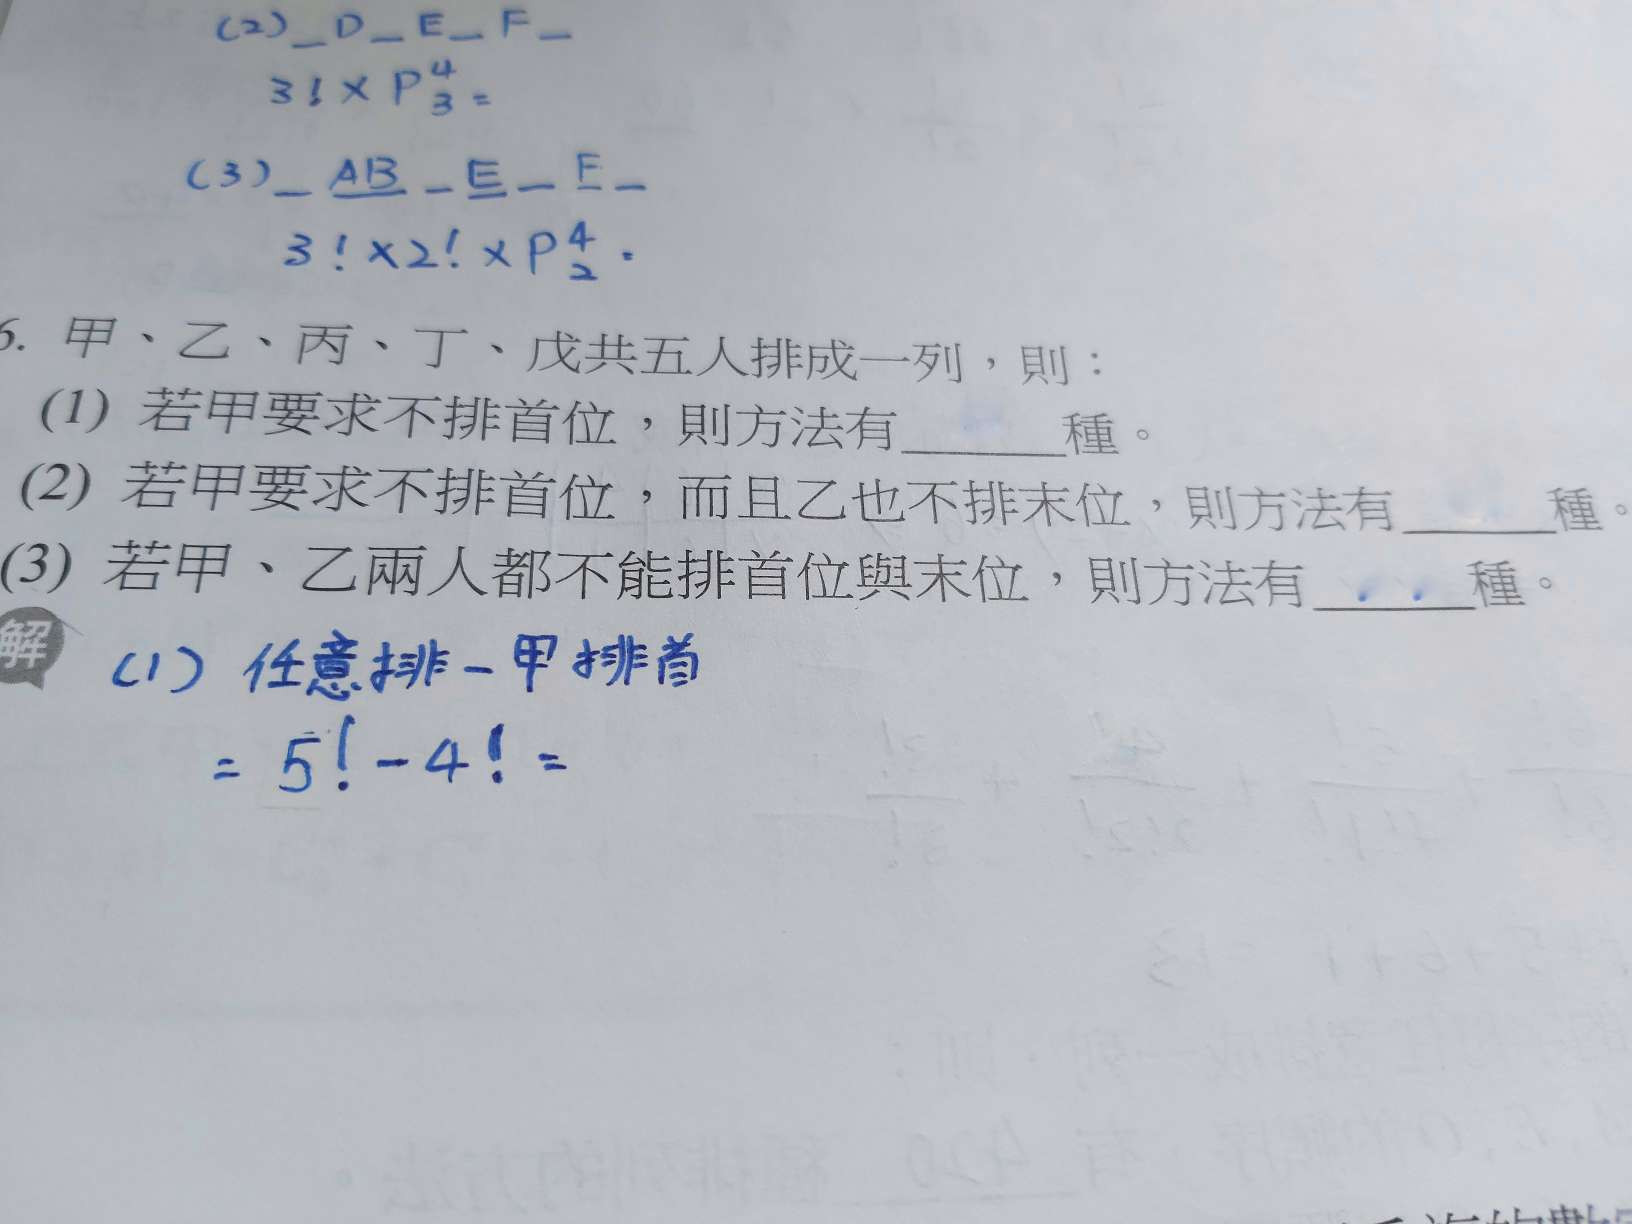 (2)_D_E_F_
3!×P⁴₃=
(3)_AB_E_F_
3!×2!×P⁴₂.
6. 甲、乙、丙、丁、戊共五人排成一列，則：
(1) 若甲要求不排首位，則方法有______種。
(2) 若甲要求不排首位，而且乙也不排末位，則方法有______種。
(3) 若甲、乙兩人都不能排首位與末位，則方法有______種。
解
(1) 任意排-甲排首
= 5!-4! =